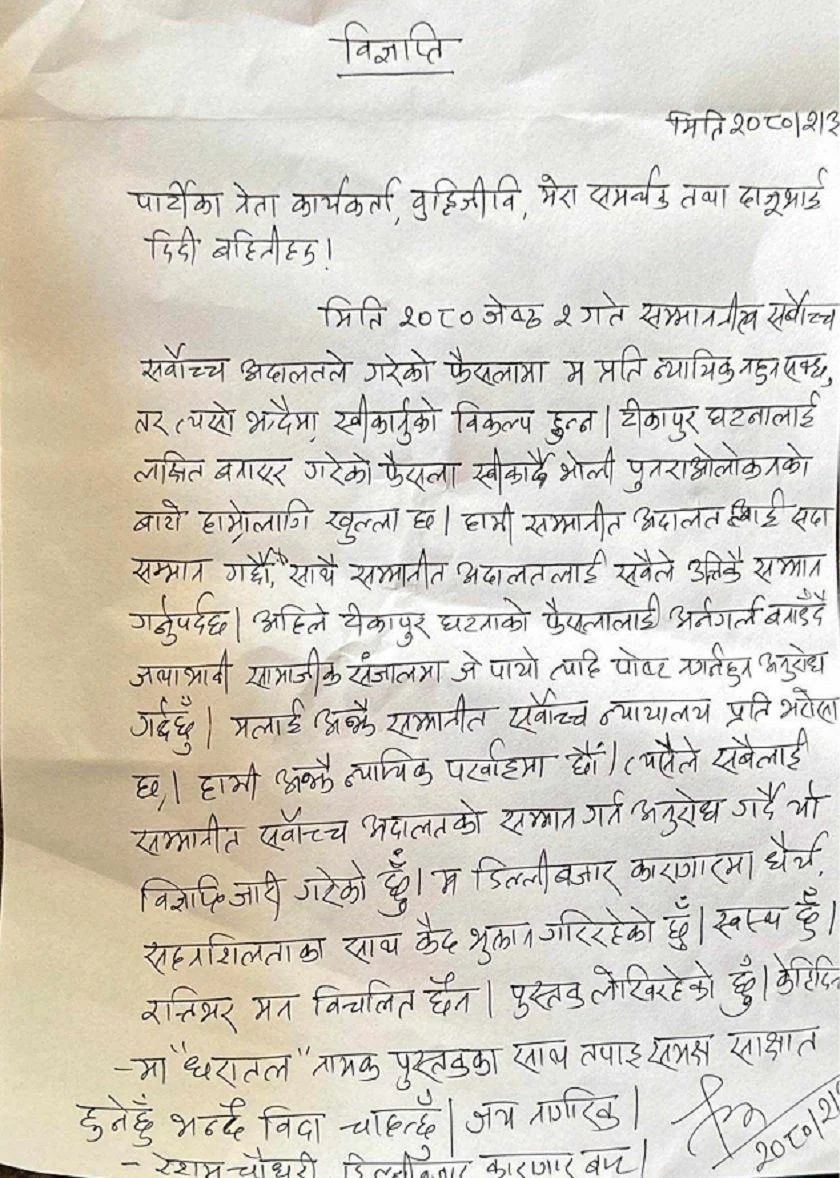 विज्ञप्ति
मिति २०८०।२।३
पार्टीका नेता कार्यकर्ता, वुद्दिजीवि, मेरा समर्थक तथा दाजूभाई
दिदी बहिनीहरु!
मिति २०८० जेष्ठ २ गते सम्माननीय सर्वोच्च
सर्वोच्च अदालतले गरेको फैसलामा म प्रति न्यायिक नहुनसक्छ,
तर त्यसो भन्दैमा स्वीकार्नुको विकल्प हुन्न। टीकापुर घटनालाई
लक्षित बनाएर गरेको फैसला स्वीकार्दै भोली पुनराओलोकनको
बाटो हाम्रोलागि खुल्ला छ। हामी सम्मानीत अदालत लाई सदा
सम्मान गर्छौं, साथै सम्मानीत अदालतलाई सबैले उत्तिकै सम्मान
गर्नुपर्दछ। अहिले टीकापुर घटनाको फैसलालाई अर्नगर्ल बनाउँदै
जथाभावी सामाजीक संजालमा जे पायो त्यहि पोष्ट नगर्नहुन अनुरोध
गर्दछुँ। मलाई अझै सम्मानीत सर्वोच्च न्यायालय प्रति भरोसा
छ,। हामी अझै न्यायिक परर्वाहमा छौं। त्यसैले सबैलाई
सम्मानीत सर्वोच्च अदालतको सम्मान गर्न अनुरोध गर्दै यो
विज्ञप्ति जारी गरेको छुँ। म डिल्लीबजार कारागारमा धैर्य,
सहनशिलताका साथ कैद भुक्तान गरिरहेको छुँ। स्वस्थ छुँ।
रत्तिभर मन विचलित छैन। पुस्तक लेखिरहेको छुँ। केहिदिन
-मा "धरातल" नामक पुस्तकका साथ तपाइ समक्ष साक्षात
हुनेछुँ भन्दै विदा चाहन्छुँ। जय नागरिक।
२०८०।२।
- रेशम चौधरी डिल्लीबजार कारागार बाट।